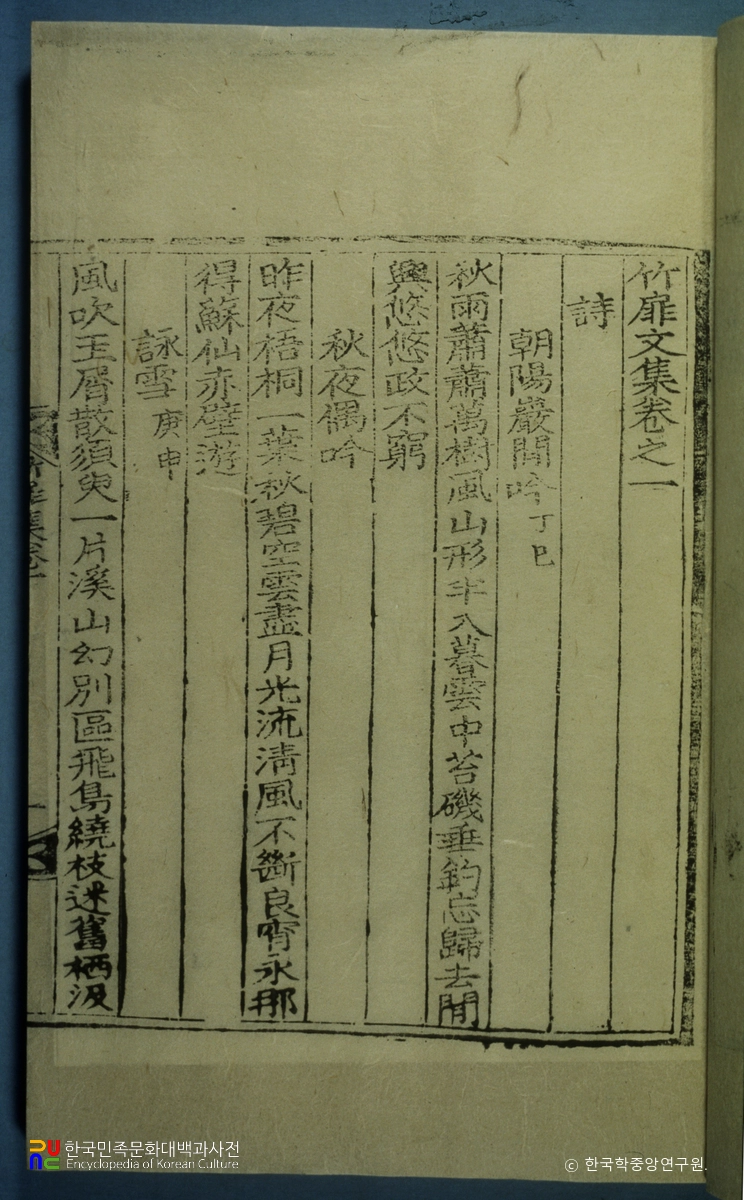 竹扉文集卷之一
詩
朝陽巖閒吟 丁巳
秋雨蕭蕭萬樹風山形半入暮雲中苔磯垂釣忘歸去閒
興悠悠政不窮
秋夜偶吟
昨夜梧桐一葉秋碧空雲盡月光流淸風不斷良宵永那
得蘇仙赤壁遊
詠雪 庚申
風吹玉屑散須臾一片溪山幻別區飛鳥繞枝迷舊栖汲
한국민족문화대백과사전
Encyclopedia of Korean Culture
© 한국학중앙연구원.